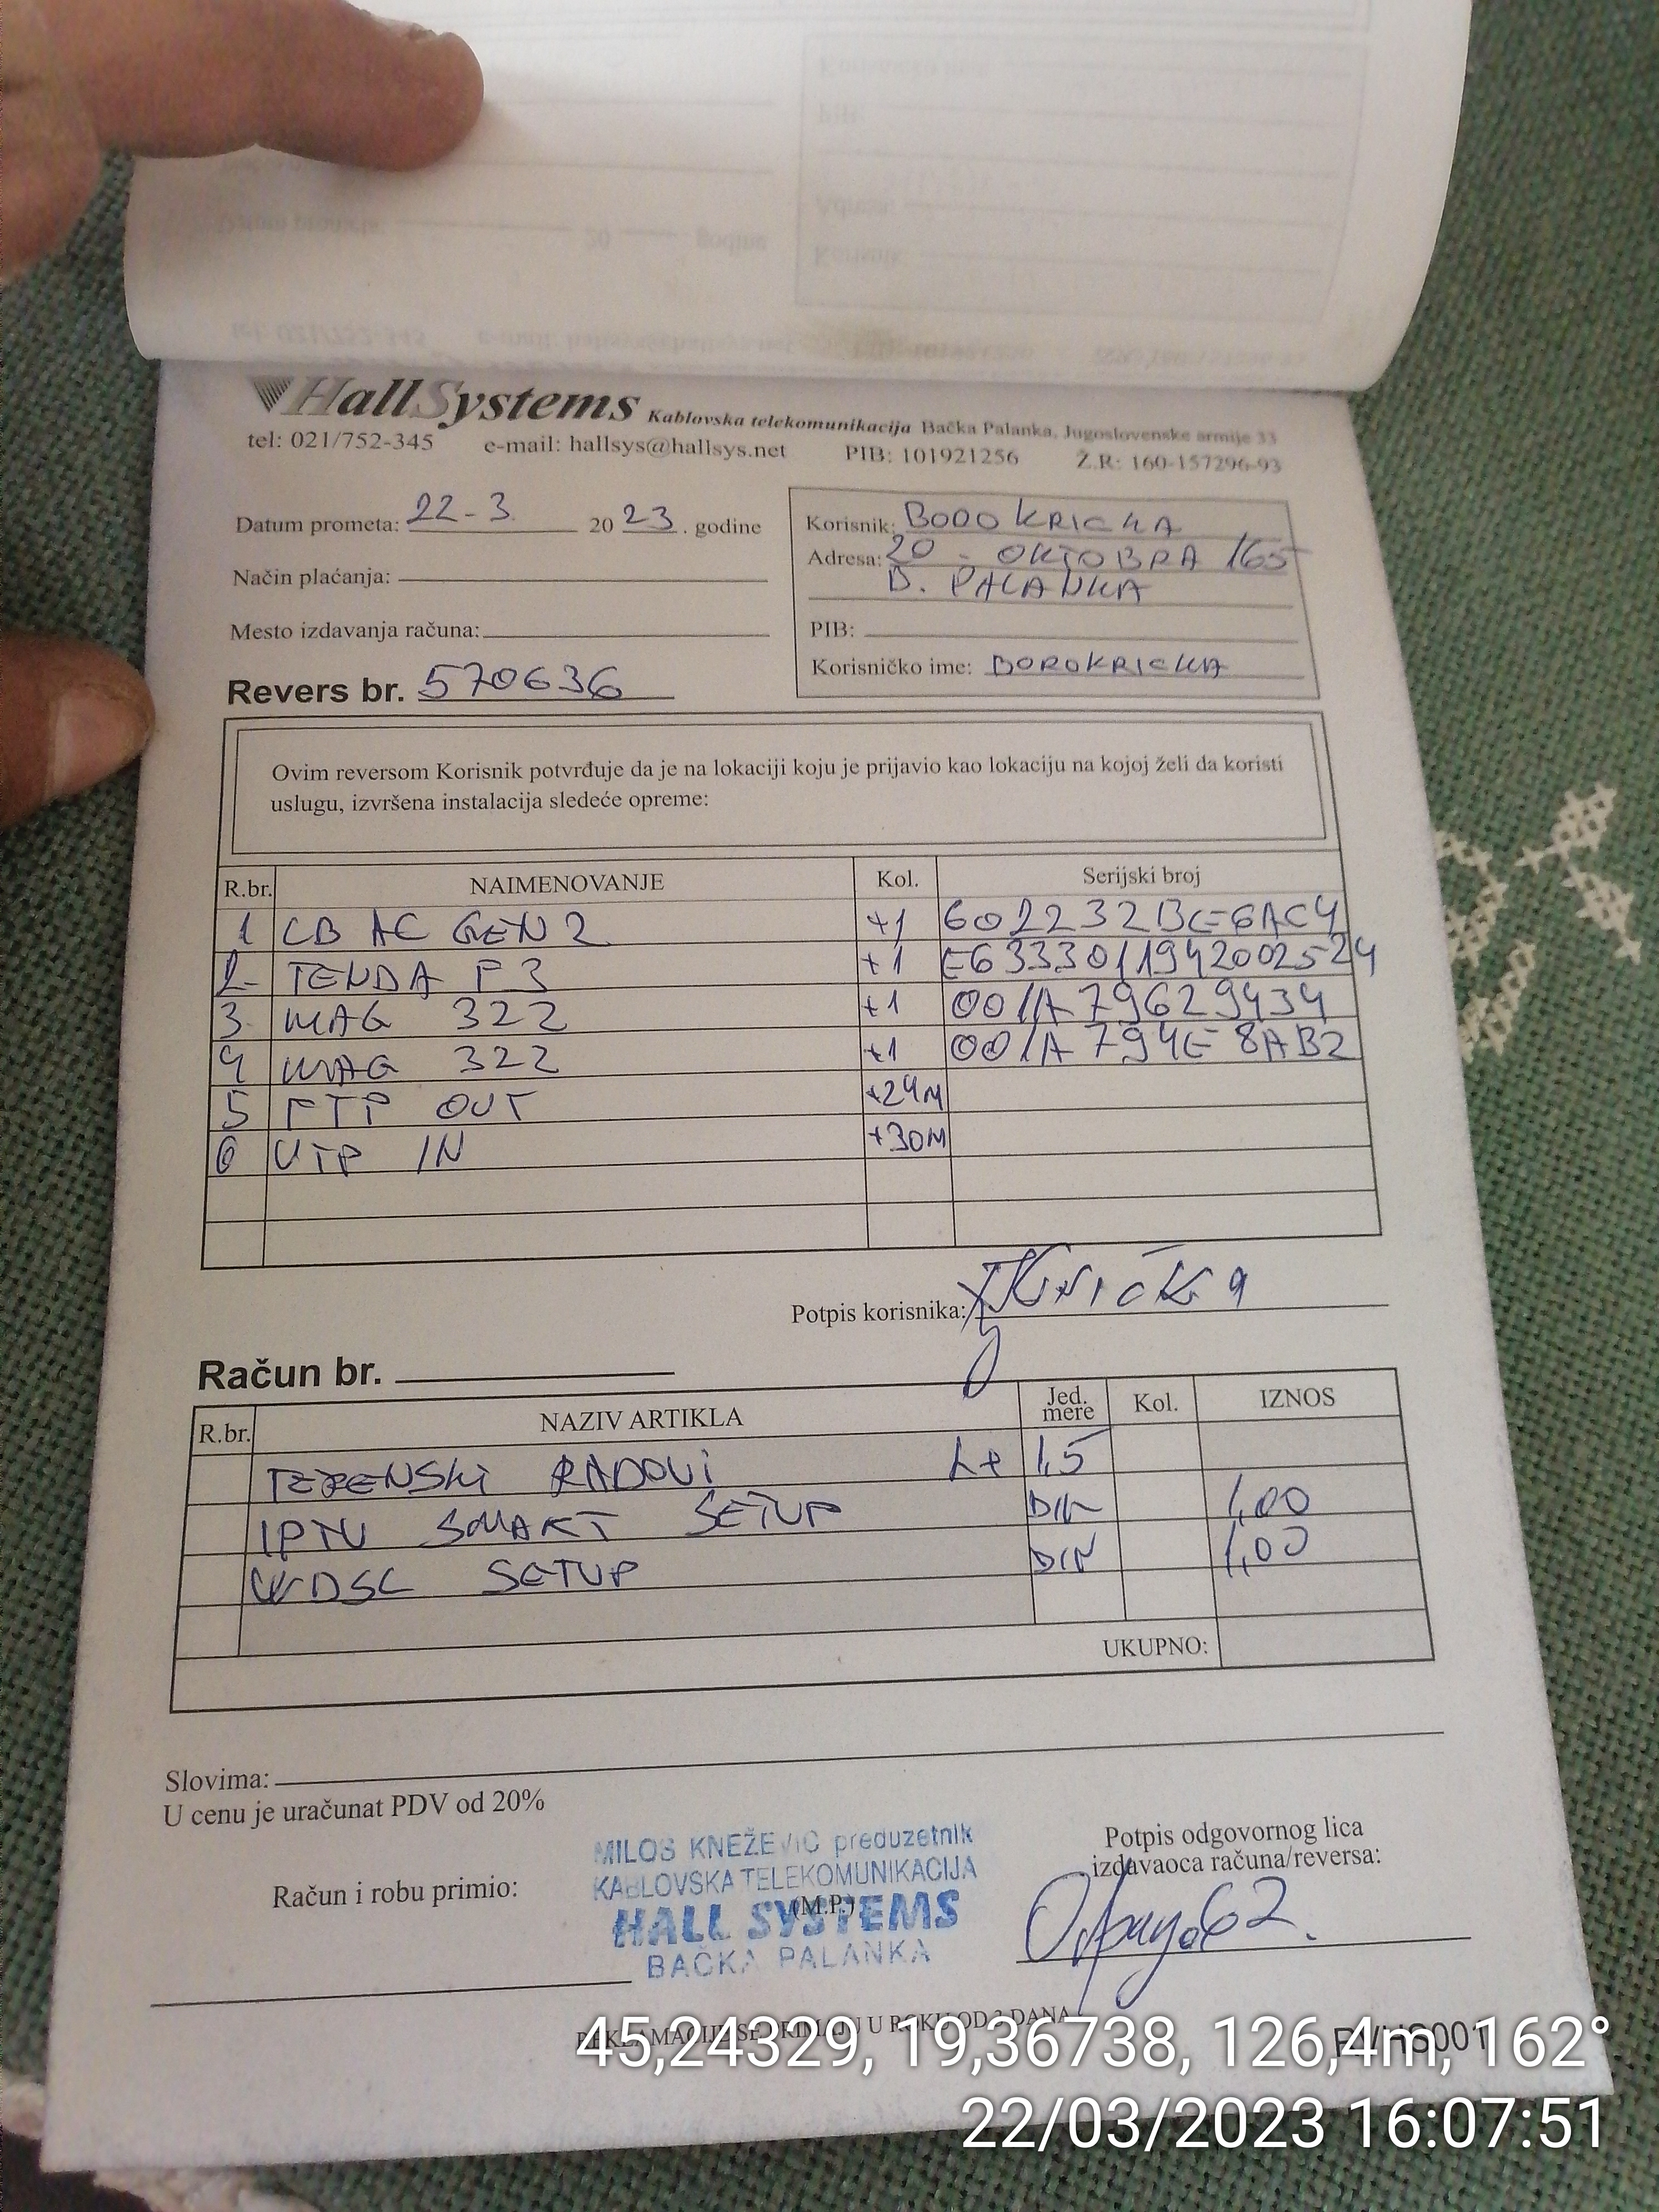 HallSystems Kablovska telekomunikacija Bačka Palanka, Jugoslovenske armije 33
tel: 021/752-345 e-mail: hallsys@hallsys.net PIB: 101921256 Ž.R: 160-157296-93
Datum prometa: 22-3 2023. godine
Način plaćanja:
Mesto izdavanja računa:
Revers br. 570636
Korisnik: BORO KRICKA
Adresa: 20 - OKTOBRA 165
B. PALANKA
PIB:
Korisničko ime: BOROKRICKA
Ovim reversom Korisnik potvrđuje da je na lokaciji koju je prijavio kao lokaciju na kojoj želi da koristi
uslugu, izvršena instalacija sledeće opreme:
R.br. NAIMENOVANJE Kol. Serijski broj
1 CB AC GEN2 +1 602232BE6AC4
2- TENDA F3 +1 E6333011942002524
3. MAG 322 +1 001A79629434
4 MAG 322 +1 001A794E8AB2
5 FTP OUT +24M
6 UTP IN +30M
Potpis korisnika: Kricka
Račun br.
R.br. NAZIV ARTIKLA Jed. mere Kol. IZNOS
TERENSKI RADOVI 1,5
IPTV SMART SETUP DIN 1,00
WDSL SETUP DIN 1,00
UKUPNO:
Slovima:
U cenu je uračunat PDV od 20%
Račun i robu primio:
MILOS KNEŽEVIĆ preduzetnik
KABLOVSKA TELEKOMUNIKACIJA
(M.P.)
HALL SYSTEMS
BAČKA PALANKA
Potpis odgovornog lica
izdavaoca računa/reversa:
REKLAMACIJE SE PRIMAJU U ROKU OD 3 DANA
45,24329, 19,36738, 126,4m, 162°
22/03/2023 16:07:51